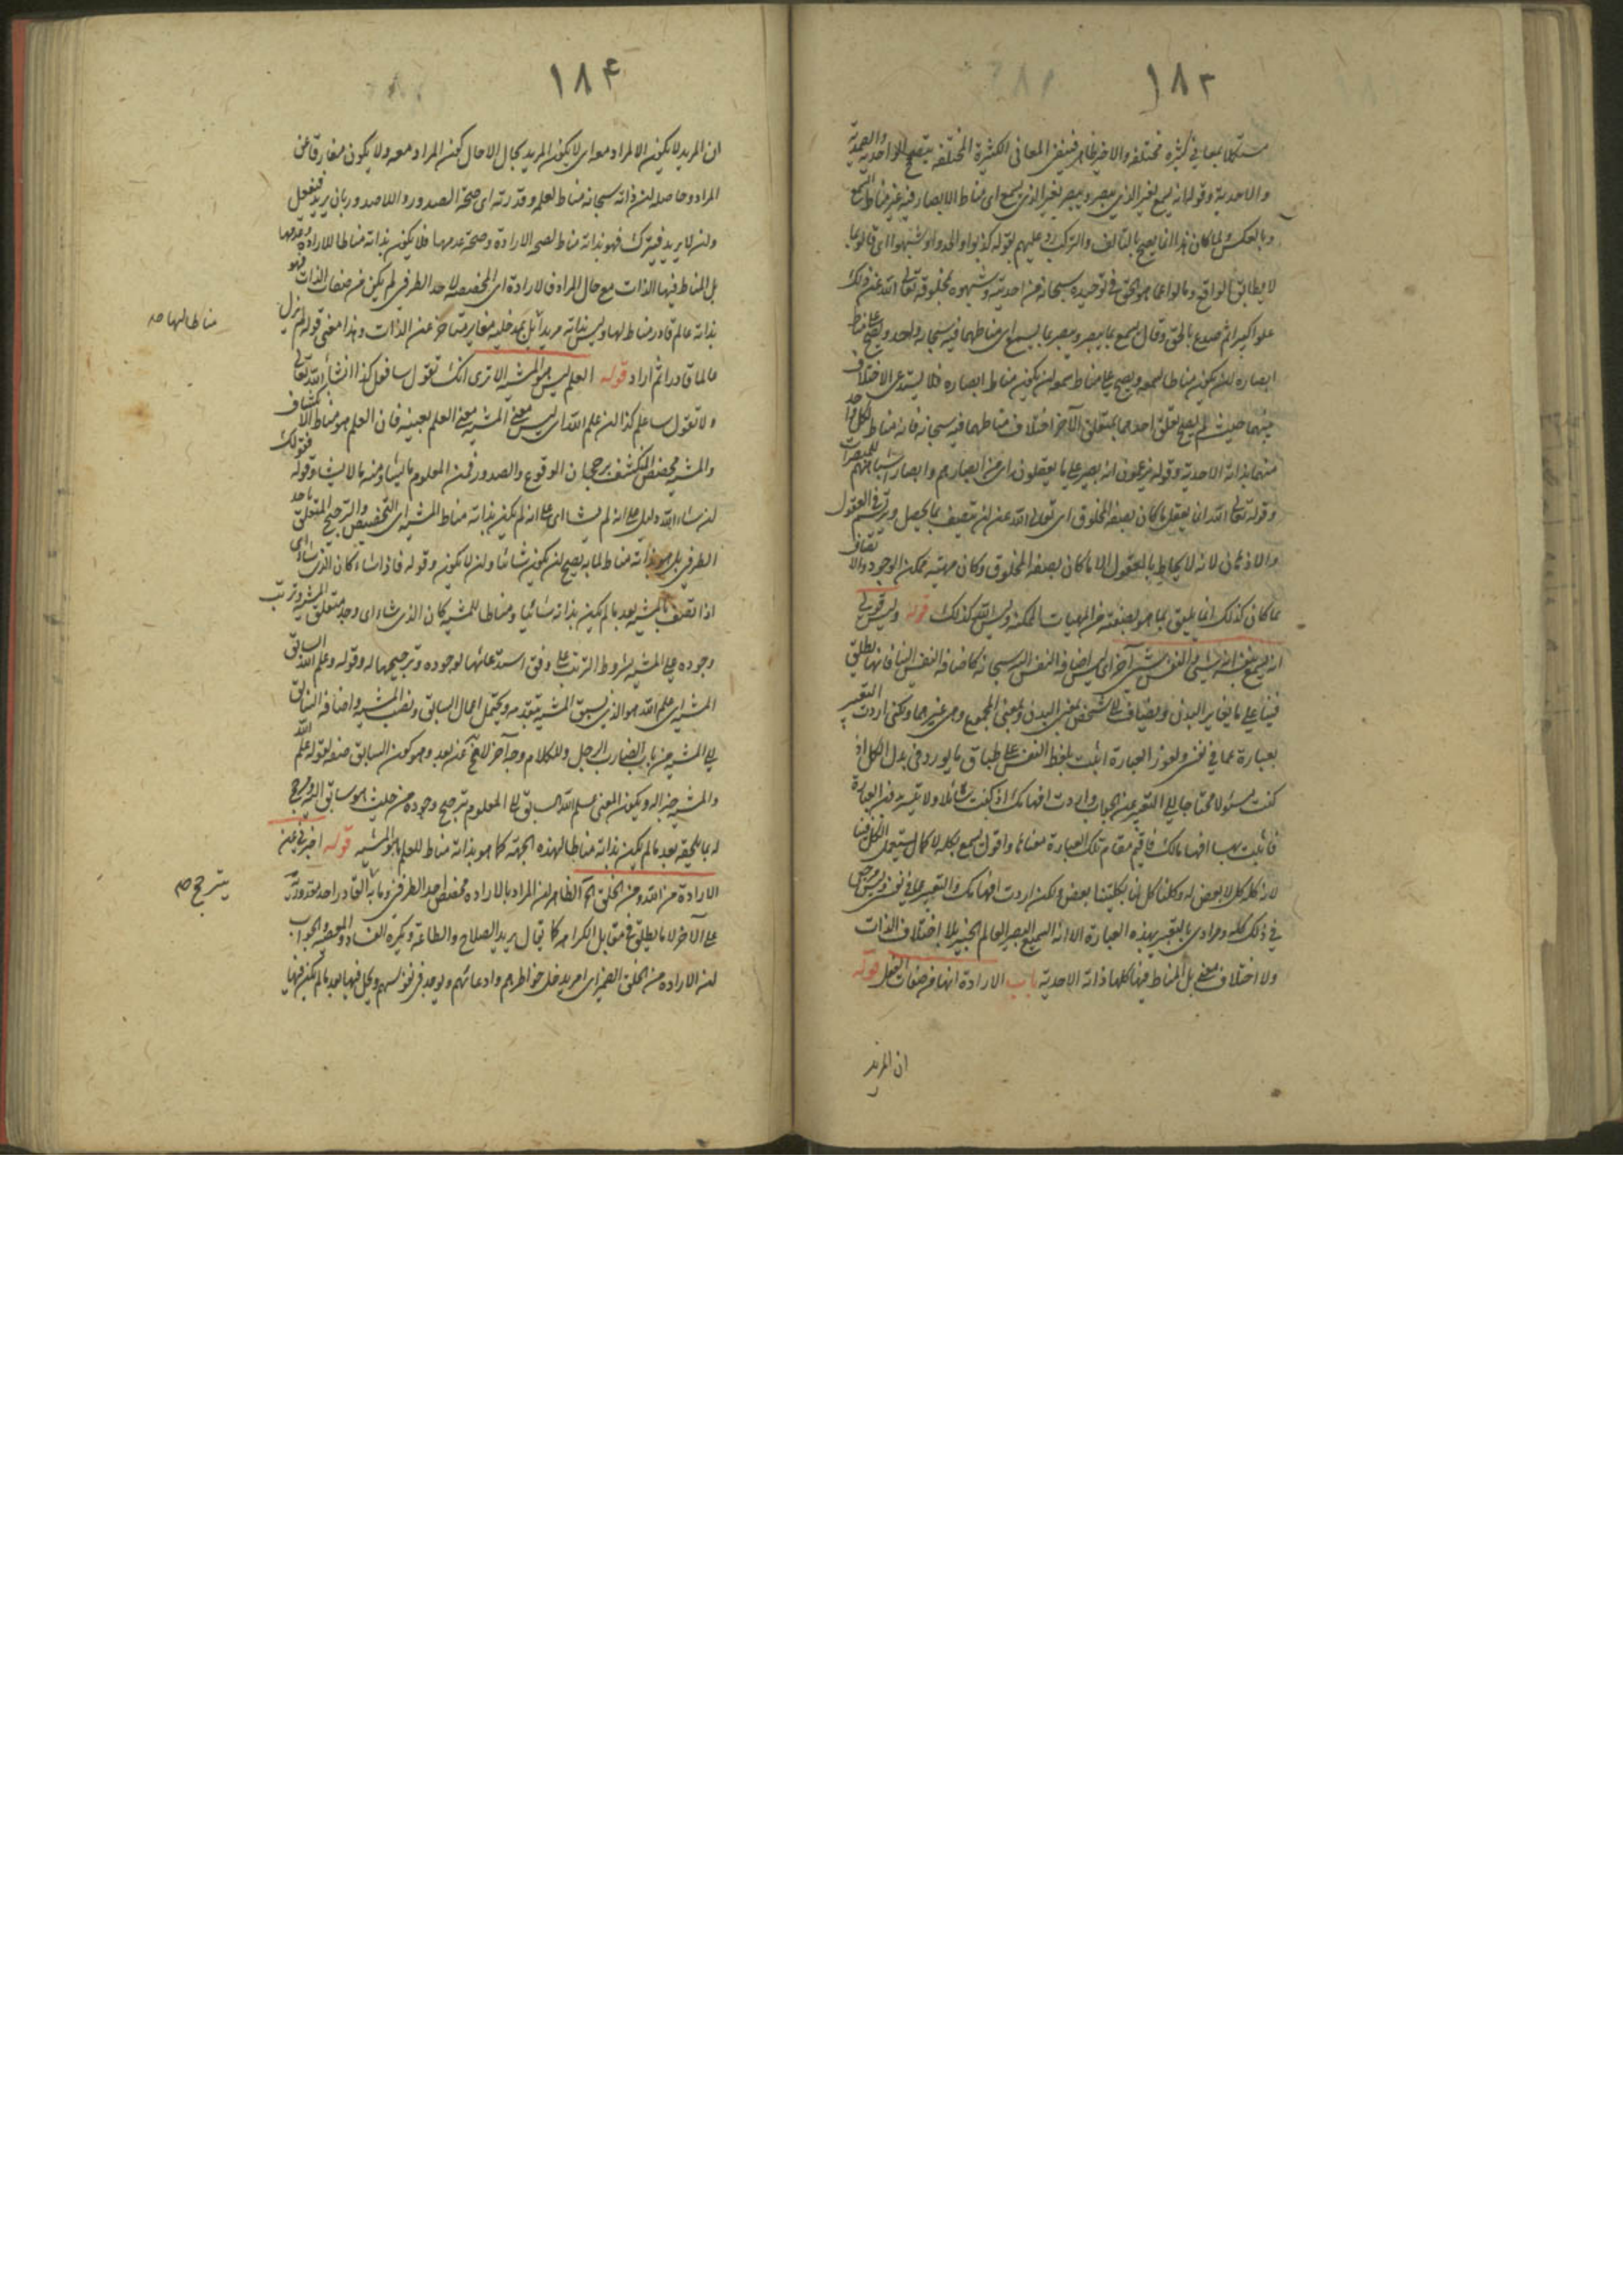 ١٨٣
مستكلا بمعاني كثيرة مختلفة والاخير ظاهر فينفي المعاني الكثيرة المختلفة بتصحيح الواحدية والصمدية
والاحدية وقوله انه يسمع بغير الذي يبصر ويبصر بغير الذي يسمع اى مناط الابصار فيه غير مناط السمع
وبالعكس لما كان هذا انما يصح بالتاليف والتركيب رد عليهم بقوله كذبوا والحدوا وشبهوا اى قالوا بما
لا يطابق الواقع ومالوا عما هو الحق في توحيده سبحانه من احديته وشبهوه بمخلوقه تعالى الله عن ذلك
علوا كبيرا ثم صدع بالحق وقال يسمع بما يبصر ويبصر بما يسمع اى مناطهما فيه سبحانه واحد ويصح على مناط
ابصاره ان يكون مناطا لسمعه ويصح على مناط سمعه ان يكون مناط ابصاره فلا يستدعى الاختلاف
بينهما حيث لم يصح تعلق احدهما بمتعلق الآخر اختلاف مناطهما فيه سبحانه فانه مناط لكل واحد
منهما بذاته الاحدية وقوله يزعمون انه بصير على ما يعقلون اى من ابصارهم وابصار اشباههم للمبصرات
وقوله تعالى الله انما يعقل ما كان بصفة المخلوق اى تعالى الله عن ان يتصف بما يحصل ويرتسم في العقول
والاذهان لانه لا يحاط بالعقول الا ما كان بصفة المخلوق وكان مهيته ممكن الوجود والاتصاف
بما كان كذلك انما يليق بما هو بصفته من المهيات الممكنة وليس الله كذلك قوله وليس قولى
انه سميع بنفسه انه شيئ والنفس شيئ آخر اى ليس اضافة النفس اليه سبحانه كاضافة النفس الينا فانها يطلق
فينا على ما يغاير البدن ويضاف الى الشخص بمعنى البدن وبمعنى المجموع وهى غيرهما ولكنى اردت التعبير
بعبارة عما في نفسى ولعوز العبارة اتيت بلفظ النفس على طباق ما يورد في بدل الكل اذ
كنت مسئولا محتاجا الى التعبير عن الجواب واردت افهامك اذ كنت سائلا ولا تيسر بدون العبارة
فاتيت بها افهاما لك فاقيم مقام تلك العبارة معناها واقول يسمع بكله لا كما يستعمل الكل فينا
لان كله كل لا بعض له وكلنا كل لنا بكليتنا بعض ولكن اردت افهامك والتعبير عما في نفسى وليس مرجعى
في ذلك كله ومرادى بالتعبير بهذه العبارة الا انه السميع البصير العالم الخبير بلا اختلاف الذات
ولا اختلاف معنى بل المناط فيها كلها ذاته الاحدية باب الارادة انها من صفات الفعل قوله
ان المريد
١٨۴
ان المريد لا يكون الا لمراد معه اى لا يكون المريد بحال الا حال كون المراد معه ولا يكون مفارقا عن
المراد وحاصله ان ذاته سبحانه مناط لعلمه وقدرته اى صحة الصدور واللاصدور بان يريد فيفعل
وان لا يريد فيترك فهو بذاته مناط لصحة الارادة وصحة عدمها فلا يكون بذاته مناطا للارادة وعدمها
بل المناط فيها الذات مع حال المراد فالارادة اى المخصصة لاحد الطرفين لم يكن من صفات الذات فهو
بذاته عالم قادر مناط لهما وليس بذاته مريدا بل بمدخلية مغاير متاخر عن الذات وهذا معنى قوله لم يزل
مناطا لهما صه
عالما قادرا ثم اراد قوله العلم ليس هو المشية الا ترى انك تقول سافعل كذا ان شاء الله تعالى
ولا تقول ساعلم كذا ان علم الله اى ليس معنى المشية معنى العلم بعينه فان العلم هو مناط الانكشاف
والمشية مخصص المنكشف برجحان الوقوع والصدور فمن المعلوم ما يشاء ومنه ما لا يشاء وقوله فقولك
ان شاء الله دليل على انه لم يشاء اى على انه لم يكن بذاته مناط المشية اى التخصيص والترجيح المتعلق باحد
الطرفين بل هو بذاته مناط لما به يصح ان يكون شائيا وان لا يكون وقوله فاذا شاء كان الذى شاء اى
اذا اتصف بالمشية بعد ما لم يكن بذاته شائيا ومناطا للمشية كان الذى شاء اى وجد متعلق المشية وترتب
وجوده على المشية بشروط الترتب على وفق استدعائها لوجوده وترجيحها له وقوله وعلم الله السابق
المشية اى علم الله هو الذى يسبق المشية بتقدمه ويحتمل اعمال السابق ونصب المشية واضافة السابق
الى المشية من باب الضارب الرجل وللكلام وجه آخر لا يخ عن بعد وهو كون السابق صفة لقوله علم الله
والمشية خبرا له ويكون المعنى علم الله السابق على المعلوم ترجيح وجوده من حيث هو سابق اليه ومرجح
له بما يلحقه بعد ما لم يكن بذاته مناطا لهذه الجهة كما هو بذاته مناط للعلم ما هو المشية قوله اخبرنى عن
الارادة من الله ومن الخلق الخ الظاهر ان المراد بالارادة مخصص احد الطرفين وما به القادر احد مقدوريه
يترجح صه
على الآخر لا ما يطلق في مقابل الكراهة كما يقال يريد الصلاح والطاعة ويكره الفساد والمعصية والجواب
ان الارادة من الخلق الضمير اى امر يدخل خواطرهم واذهانهم ويوجد في نفوسهم ويحل فيها بعد ما لم يكن فيها